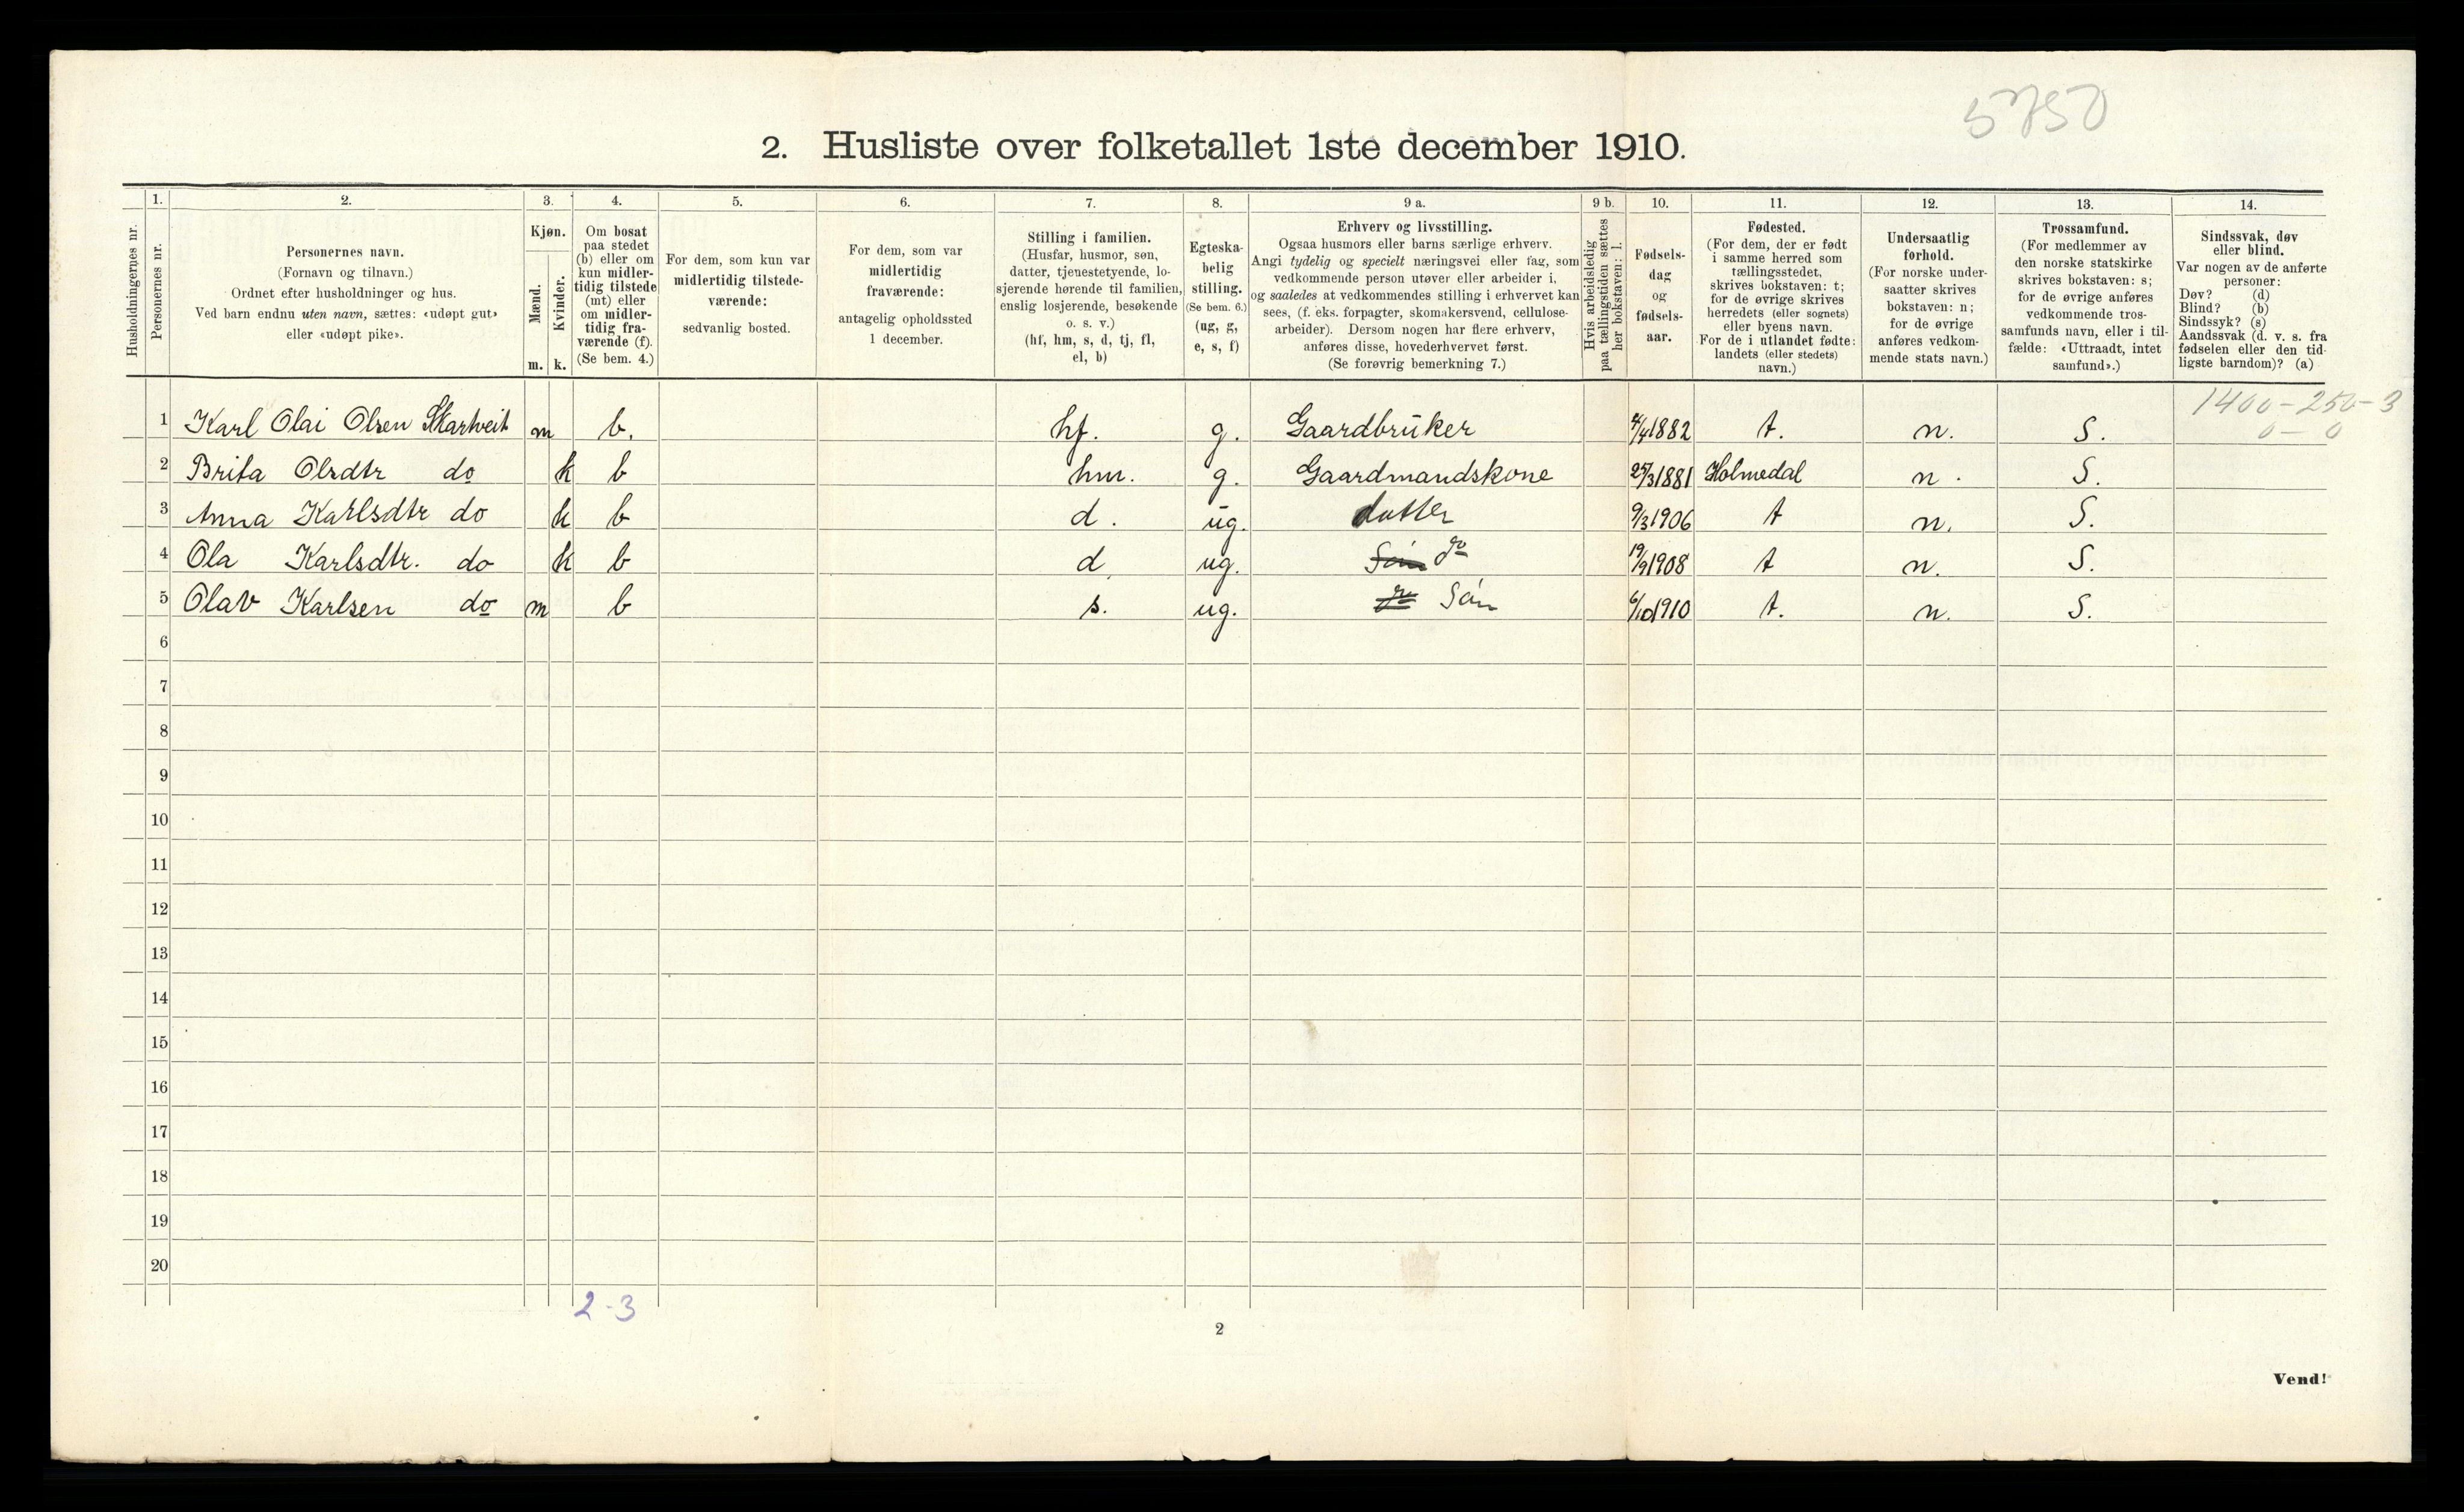 5750
2. Husliste over folketallet 1ste december 1910.
Husholdningernes nr.
1.
Personernes nr.
2.
Personernes navn.
(Fornavn og tilnavn.)
Ordnet efter husholdninger og hus.
Ved barn endnu uten navn, sættes: «udøpt gut»
eller «udøpt pike».
3.
Kjøn.
Mænd.
Kvinder.
m.
k.
4.
Om bosat
paa stedet
(b) eller om
kun midler-
tidig tilstede
(mt) eller
om midler-
tidig fra-
værende (f).
(Se bem. 4.)
5.
For dem, som kun var
midlertidig tilstede-
værende:
sedvanlig bosted.
6.
For dem, som var
midlertidig
fraværende:
antagelig opholdssted
1 december.
7.
Stilling i familien.
(Husfar, husmor, søn,
datter, tjenestetyende, lo-
sjerende hørende til familien,
enslig losjerende, besøkende
o. s. v.)
(hf, hm, s, d, tj, fl,
el, b)
8.
Egteska-
belig
stilling.
(Se bem. 6.)
(ug, g,
e, s, f)
9 a.
Erhverv og livsstilling.
Ogsaa husmors eller barns særlige erhverv.
Angi tydelig og specielt næringsvei eller fag, som
vedkommende person utøver eller arbeider i,
og saaledes at vedkommendes stilling i erhvervet kan
sees, (f. eks. forpagter, skomakersvend, cellulose-
arbeider). Dersom nogen har flere erhverv,
anføres disse, hovederhvervet først.
(Se forøvrig bemerkning 7.)
9 b.
Hvis arbeidsledig
paa tællingstiden sættes
her bokstaven: l.
10.
Fødsels-
dag
og
fødsels-
aar.
11.
Fødested.
(For dem, der er født
i samme herred som
tællingsstedet,
skrives bokstaven: t;
for de øvrige skrives
herredets (eller sognets)
eller byens navn.
For de i utlandet fødte:
landets (eller stedets)
navn.)
12.
Undersaatlig
forhold.
(For norske under-
saatter skrives
bokstaven: n;
for de øvrige
anføres vedkom-
mende stats navn.)
13.
Trossamfund.
(For medlemmer av
den norske statskirke
skrives bokstaven: s;
for de øvrige anføres
vedkommende tros-
samfunds navn, eller i til-
fælde: «Uttraadt, intet
samfund».)
14.
Sindssvak, døv
eller blind.
Var nogen av de anførte
personer:
Døv? (d)
Blind? (b)
Sindssyk? (s)
Aandssvak (d. v. s. fra
fødselen eller den tid-
ligste barndom)? (a)
1400-250-3
0-0
1 Karl Olai Olsen Skartveit m b. hf. g. Gaardbruker 4/4 1882 t. n. S.
2 Brita Olsdtr do k b hm. g. Gaardmandskone 25/3 1881 Holmedal n. S.
3 Anna Karlsdtr do k b d. ug. datter 9/3 1906 t n. S.
4 Ola Karlsdtr. do k b d ug. Søn do 19/9 1908 t n. S.
5 Olav Karlsen do m b s. ug. do Søn 6/10 1910 t. n. S.
6
7
8
9
10
11
12
13
14
15
16
17
18
19
20
2-3
2
Vend!